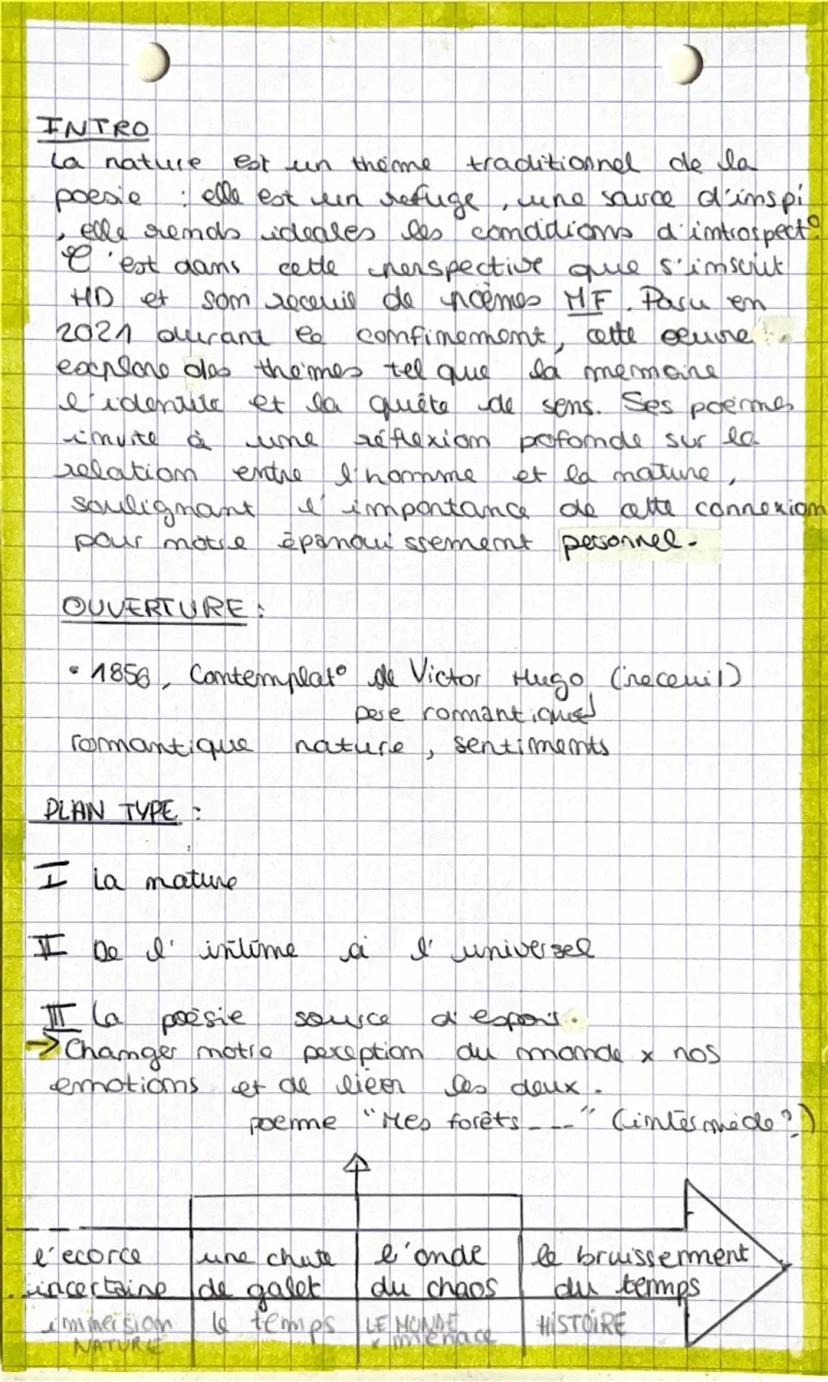 INTRO
La nature est un thème traditionnel de la
poesie : elle est un refuge, une source d'inspi
, elle rends ideales les conditions d'introspect°.
C'est dans cette perspective que s'inscrit
HD et son receuil de poèmes MF. Paru en
2021 durant le confinement, cette oeuvre
explore des thèmes tel que la memoire
l'identite et la quête de sens. Ses poèmes
invite à une réflexion pofonde sur la
relation entre l'homme et la nature,
soulignant l'importance de cette connexion
pour notre épanouissement personnel.
OUVERTURE :
• 1856, Contemplat° de Victor Hugo (receuil)
pere romantique
romantique nature, sentiments
PLAN TYPE :
I La nature
II De l'intime à l'universel
III La poésie source d'espoir.
→ Changer notre perception du monde x nos
emotions et de lieer les deux.
poeme "Mes forêts---" (intermède?)
l'ecorce incertaine
une chute de galet
l'onde du chaos
le bruissement du temps
immersion NATURE
le temps
LE MONDE x menace
HISTOIRE